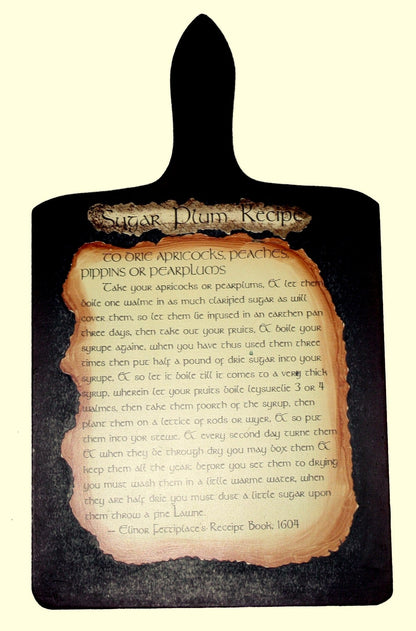 Sugar Plum Recipe
TO DRIE APRICOCKS, PEACHES,
PIPPINS OR PEARPLUMS
Take your apricocks or pearplums, & let them
boile one walme in as much clarified sugar as will
cover them, so let them lie infused in an earthen pan
three days, then take out your fruits, & boile your
syrupe againe, when you have thus used them three
times then put half a pound of drie sugar into your
syrupe, & so let it boile till it comes to a very thick
syrup, wherein let your fruits boile leysurelie 3 or 4
walmes, then take them foorth of the syrup, then
plant them on a lettice of rods or wyer, & so put
them into yor stewe, & every second day turne them
& when they be through dry you may box them &
keep them all the year; before you set them to drying
you must wash them in a litlle warme water, when
they are half drie you must dust a little sugar upon
them throw a fine Lawne.
— Elinor Fettiplace's Receipt Book, 1604